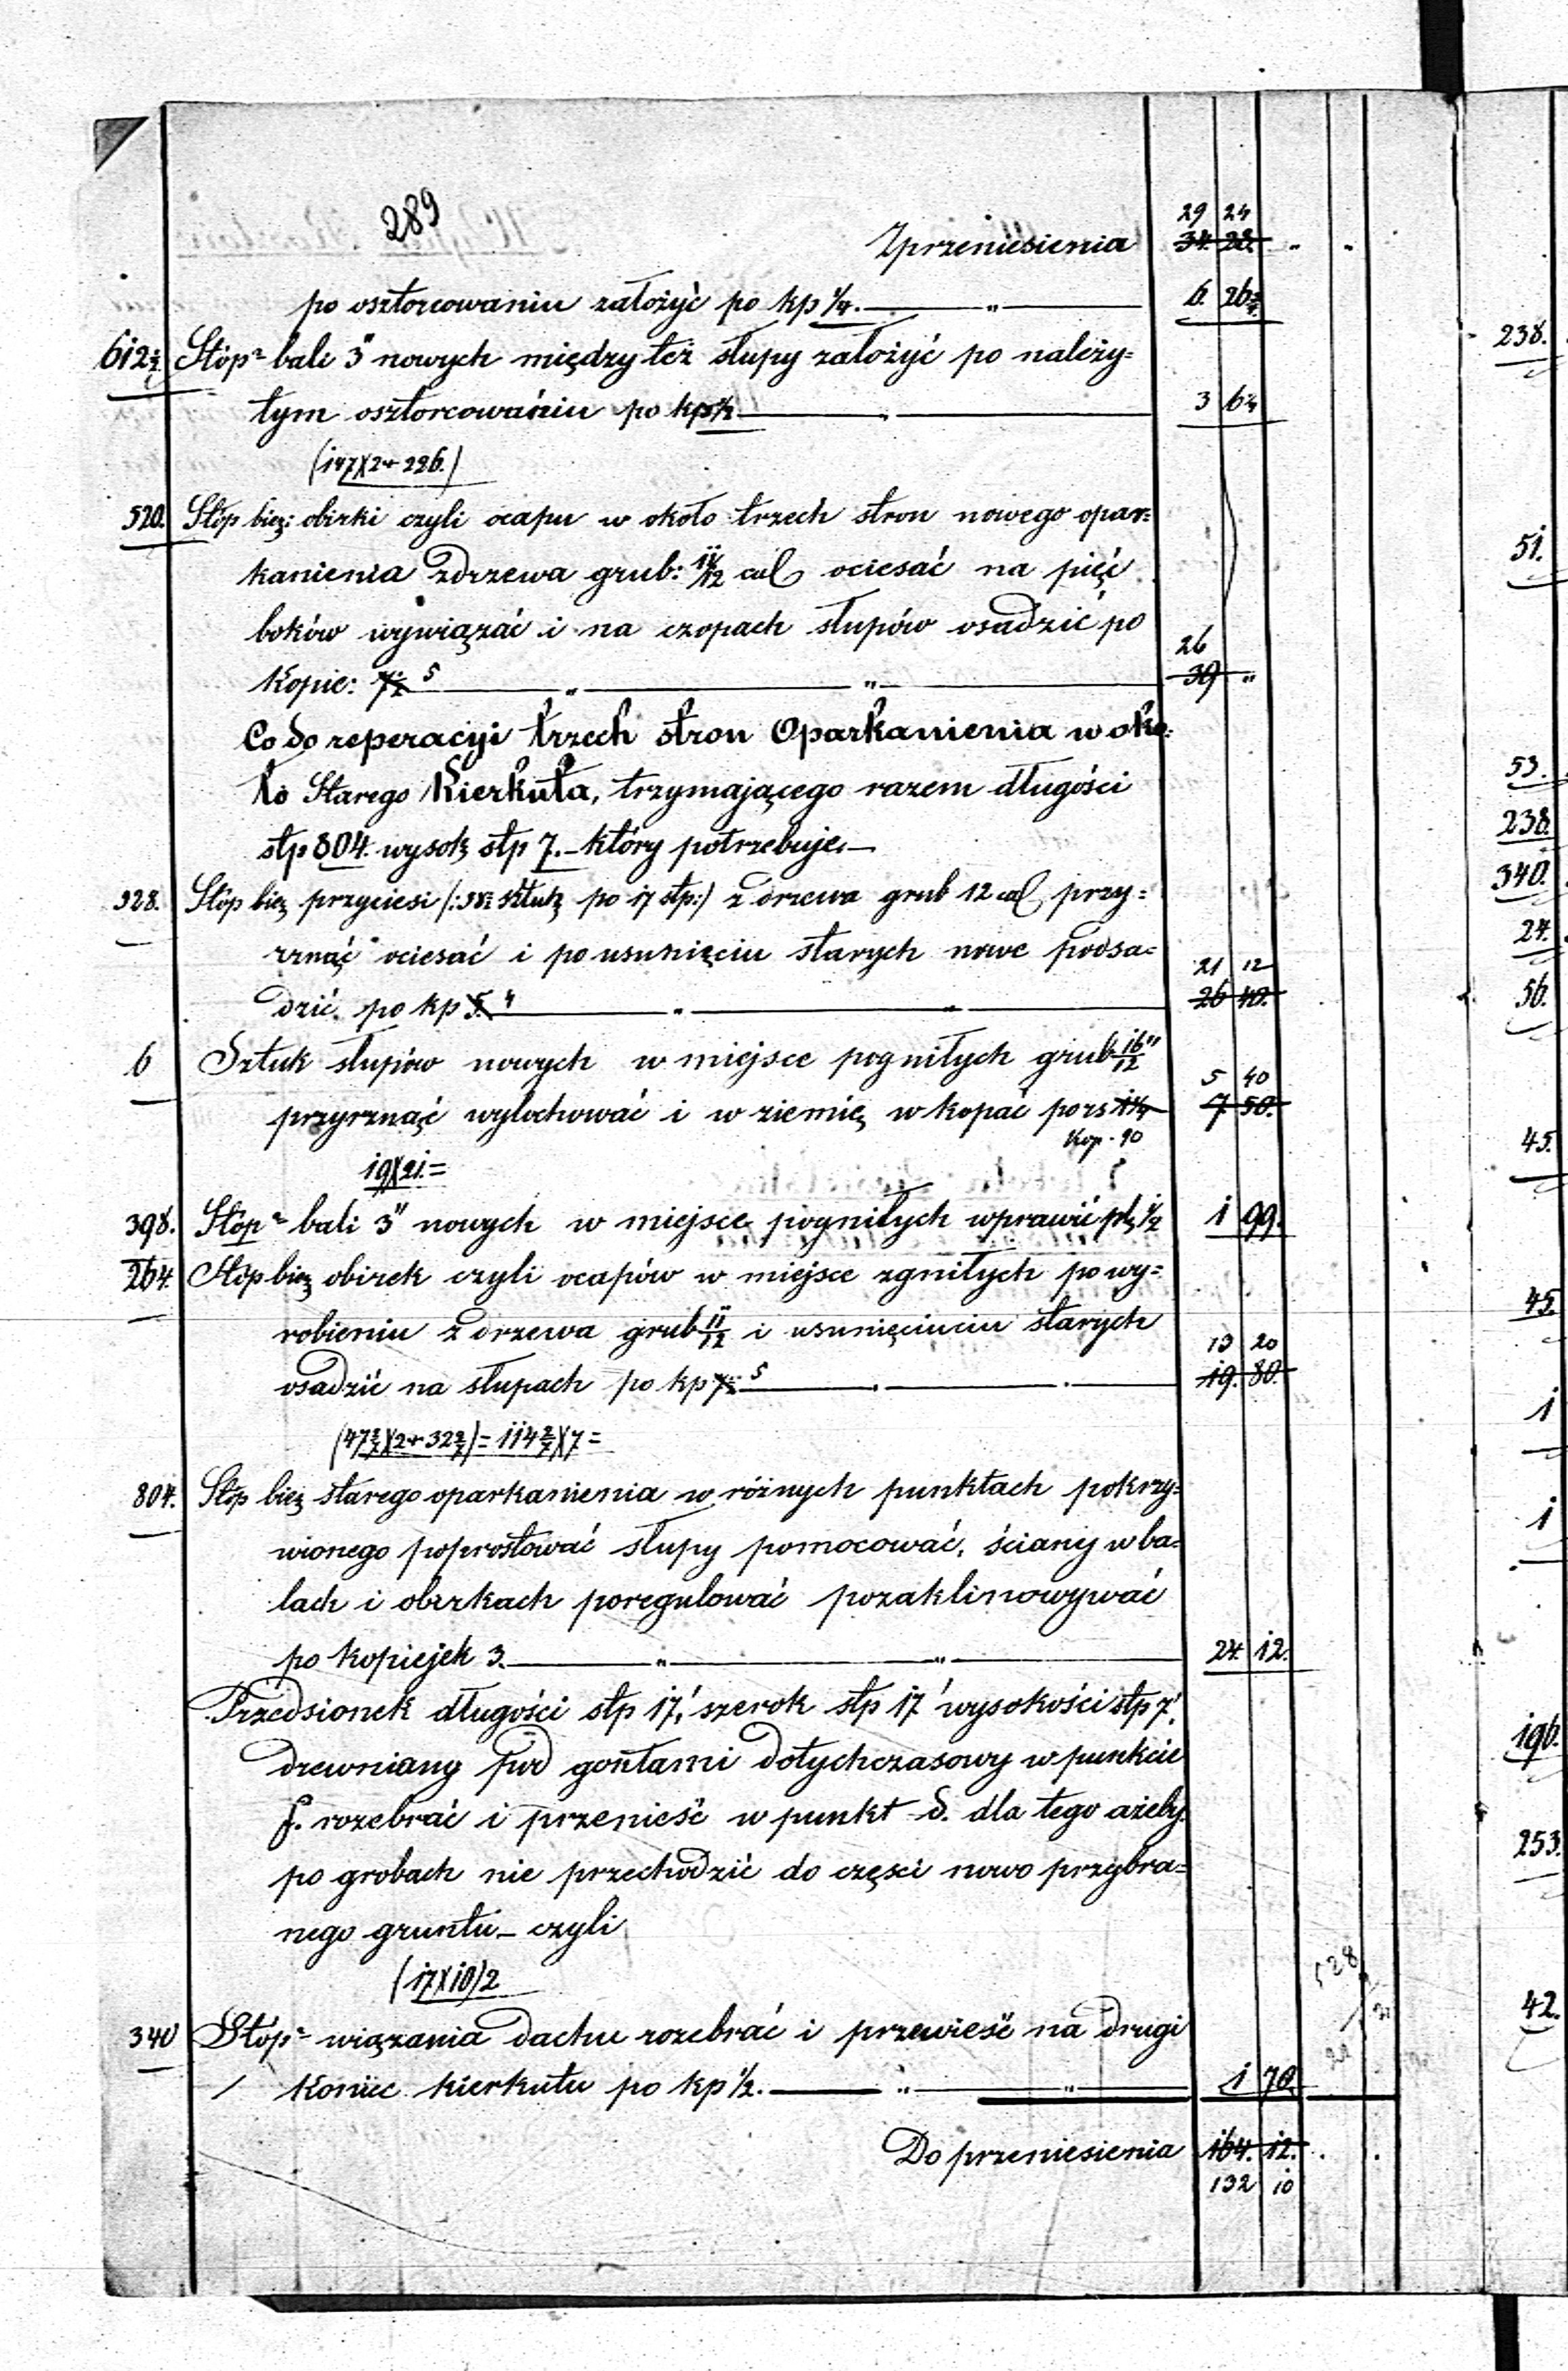 289
29 24
Zprzeniesienia 34. 28.
po osztorcowaniu założyć po kp 1/4. — „ — 6. 26 3/4
612 1/2 Stóp² bali 3" nowych między też słupy założyć po należy=
tym osztorcowaniu po kp 1/2 — „ — 3 6 1/4
(147)(2+226.)
520. Stóp bież: obirki czyli ocapu w około trzech stron nowego opar=
kanienia zdrzewa grub: 11/12 cal ociesać na pięć
boków wywiązać i na czopach słupów osadzić po
26
Kopie: 7 1/2 5 — „ — „ — 39 „
Co do reperacyi trzech stron Oparkanienia w oko=
ło Starego Kierkuta, trzymającego razem długości
stp 804. wysok stp 7. – który potrzebuje. —
528. Stóp bież przyciesi (: sztuk po 17 stp:) z drzewa grub 12 cal przy=
rznąć ociesać i po usunięciu starych nowe podsa=
21 12
dzić. po kp 5. 4 — „ — „ — 26 40.
6 Sztuk słupów nowych w miejsce pogniłych grub 16/12"
5 40
przyrznąć wylochować i w ziemię wkopać po rs 1 1/4 7. 50.
Kop. 90
19)(21.=
398. Stóp² bali 3" nowych w miejsce pogniłych wprawić 1/2 1 99.
264. Stóp bież obirek czyli ocapów w miejsce zgniłych po wy=
robieniu z drzewa grub 11/12 i usunięciuciu starych
13 20
osadzić na słupach po kp 7 1/2 5 — . — . — 19. 80.
(47 2/7)(2+32 2/7)=114 2/7)(7=
804. Stóp bież starego oparkanienia w różnych punktach pokrzy=
wionego poprostować słupy pomocować, ściany w ba=
lach i obirkach poregulować pozaklinowywać
po kopiejek 3. — „ — „ — 24. 12.
Przedsionek długości stp 17,' szerok stp 17' wysokości stp 7'.
drewniany pod gontami dotychczasowy w punkcie
f. rozebrać i przenieść w punkt d. dla tego ażeby
po grobach nie przechodzić do części nowo przybra=
nego gruntu – czyli
(17)(10)2
340 Stóp² wiązania dachu rozebrać i przewieść na drugi
koniec kierkutu po kp 1/2. — „ — „ — 1 70.
Do przeniesienia 164. 12.
132 10
238.
51.
53.
238.
340.
24.
56.
45.
45.
1
1
196.
253.
42.